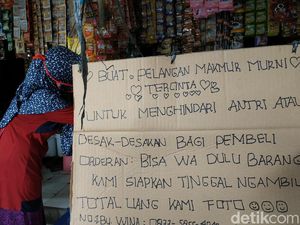 BUAT² PELANGAN MAKMUR MURNI
TERCINTA
UNTUK MENGHINDARI ANTRI ATAU
DESAK-DESAKAN BAGI PEMBELI
ORDERAN: BISA WA DULU BARANG
KAMI SIAPKAN TINGGAL NGAMBIL
TOTAL UANG KAMI FOTO
NO IBU WINA
detikcom